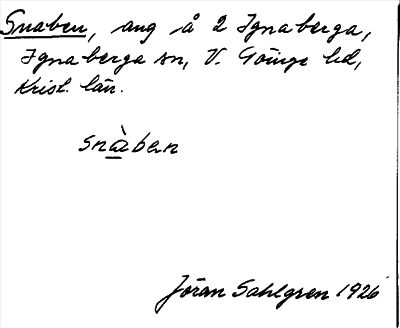 Snaben, äng å 2 Ignaberga,
Ignaberga sn, V. Göinge hd,
Krist. län.
snàben
Jöran Sahlgren 1926